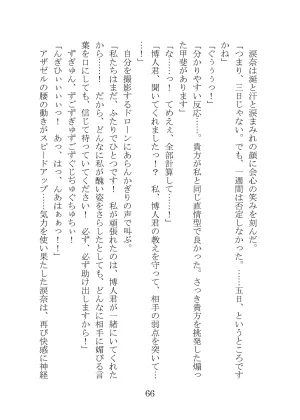 涙奈は涎と汗と涙まみれの顔に会心の笑みを刻んだ。
「つまり、三日じゃない。でも、一週間は否定しなかった。……五日、というところです
かね」
「ぐぅぅうっ！」
「分かりやすい反応……。貴方が私と同じ直情型で良かった。さっき貴方を挑発した煽っ
た甲斐があります」
「な……っ！　てめええ、全部計算して……っ！」
「博人君、聞いてくれましたっ？　私、博人君の教えを守って、相手の弱点を突いて……
…！」
自分を撮影するドローンにあらんかぎりの声で叫ぶ。
「私たちはまだ、ふたりでひとつです！　私が頑張れたのは、博人君が一緒にいてくれた
から……っ！　だから、どんなに私が醜い姿をさらしたとしても、どんなに相手に媚びる言
葉を口にしても、信じて待っていてください！　必ず、必ず助け出しますから！」
ずぎゅん、ずごずぎゅずぐじじゅぐちゅぅぃ！
「んぎひぃぃぃぃっ！　あっ、はっ、んあはぁぁっ！！」
アザゼルの腰の動きがスピードアップ……気力を使い果たした涙奈は、再び快感に神経
66